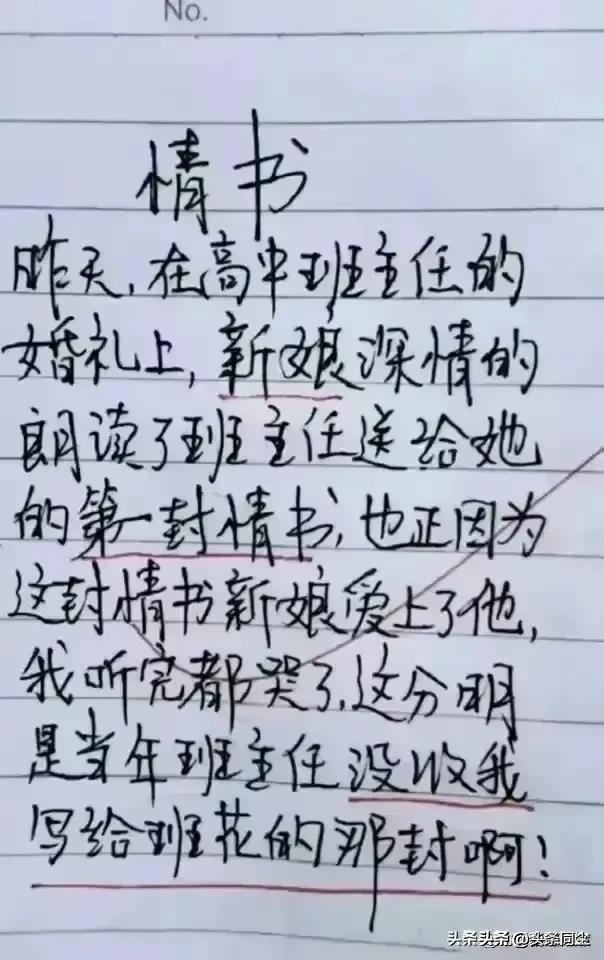 No.
情书
昨天,在高中班主任的
婚礼上,新娘深情的
朗读了班主任送给她
的第一封情书,也正因为
这封情书新娘爱上了他,
我听完都哭了,这分明
是当年班主任没收我
写给班花的那封啊!
头条头条@